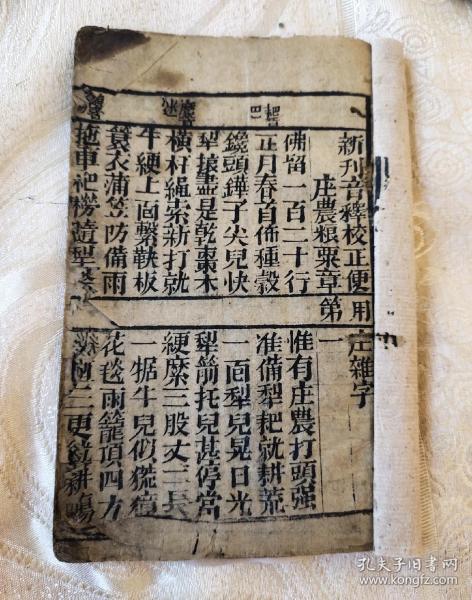 新刊音釋校正便用庄雜字
庄農粮粟章第一
佛留一百二十行
惟有庄農打頭強
正月春首佈種穀
准備犁耙就耕荒
鐃頭鏵子尖兒快
一面犁兒晃日光
犁揍盡是乾棗木
犁箭托兒甚停當
橫杆繩索新打就
綆縻三股丈二長
牛綆上面繫鞅板
一犋牛兒似
蓑衣蒲笠防備雨
花毯雨籠頂四方
拖車耙耮隨犁
三更耕
孔夫子旧书网
www.kongfz.com